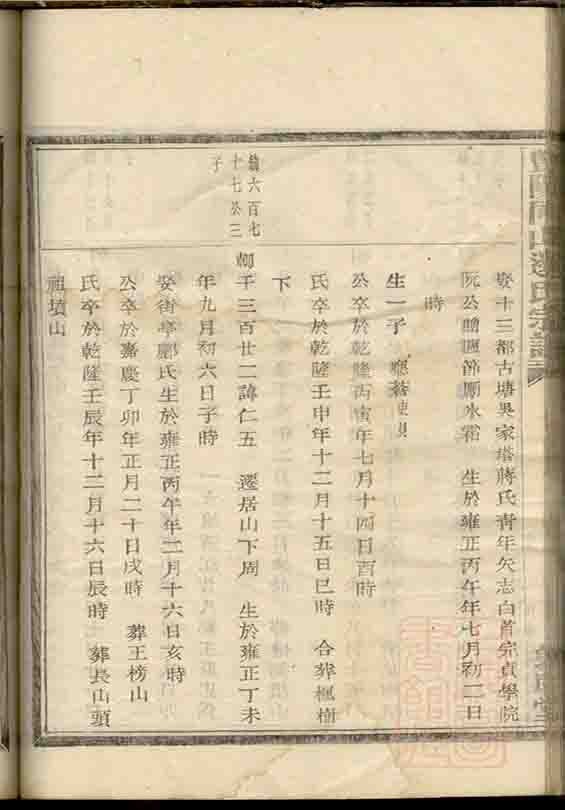 娶十三都古塘吳家塔蔣氏青年矢志白首完貞學院
阮公贈匾節勵氷霜 生於雍正丙午年七月初二日
時
生一子
公卒於乾隆丙寅年七月十四日酉時
氏卒於乾隆壬申年十二月十五日巳時 合葬楓樹
下
六百七
十七公三
子
千三百廿二諱仁五 遷居山下周 生於雍正丁未
年九月初六日子時
娶街亭酈氏生於雍正丙午年二月十六日亥時
公卒於嘉慶丁卯年正月二十日戌時 葬王榜山
氏卒於乾隆壬辰年十二月十六日辰時 葬長山頭
祖墳山